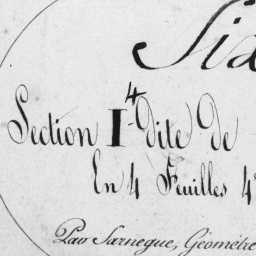 Six
Section I⁴ dite de
En 4 Feuilles 4e
Par Sarnegue, Géomètre